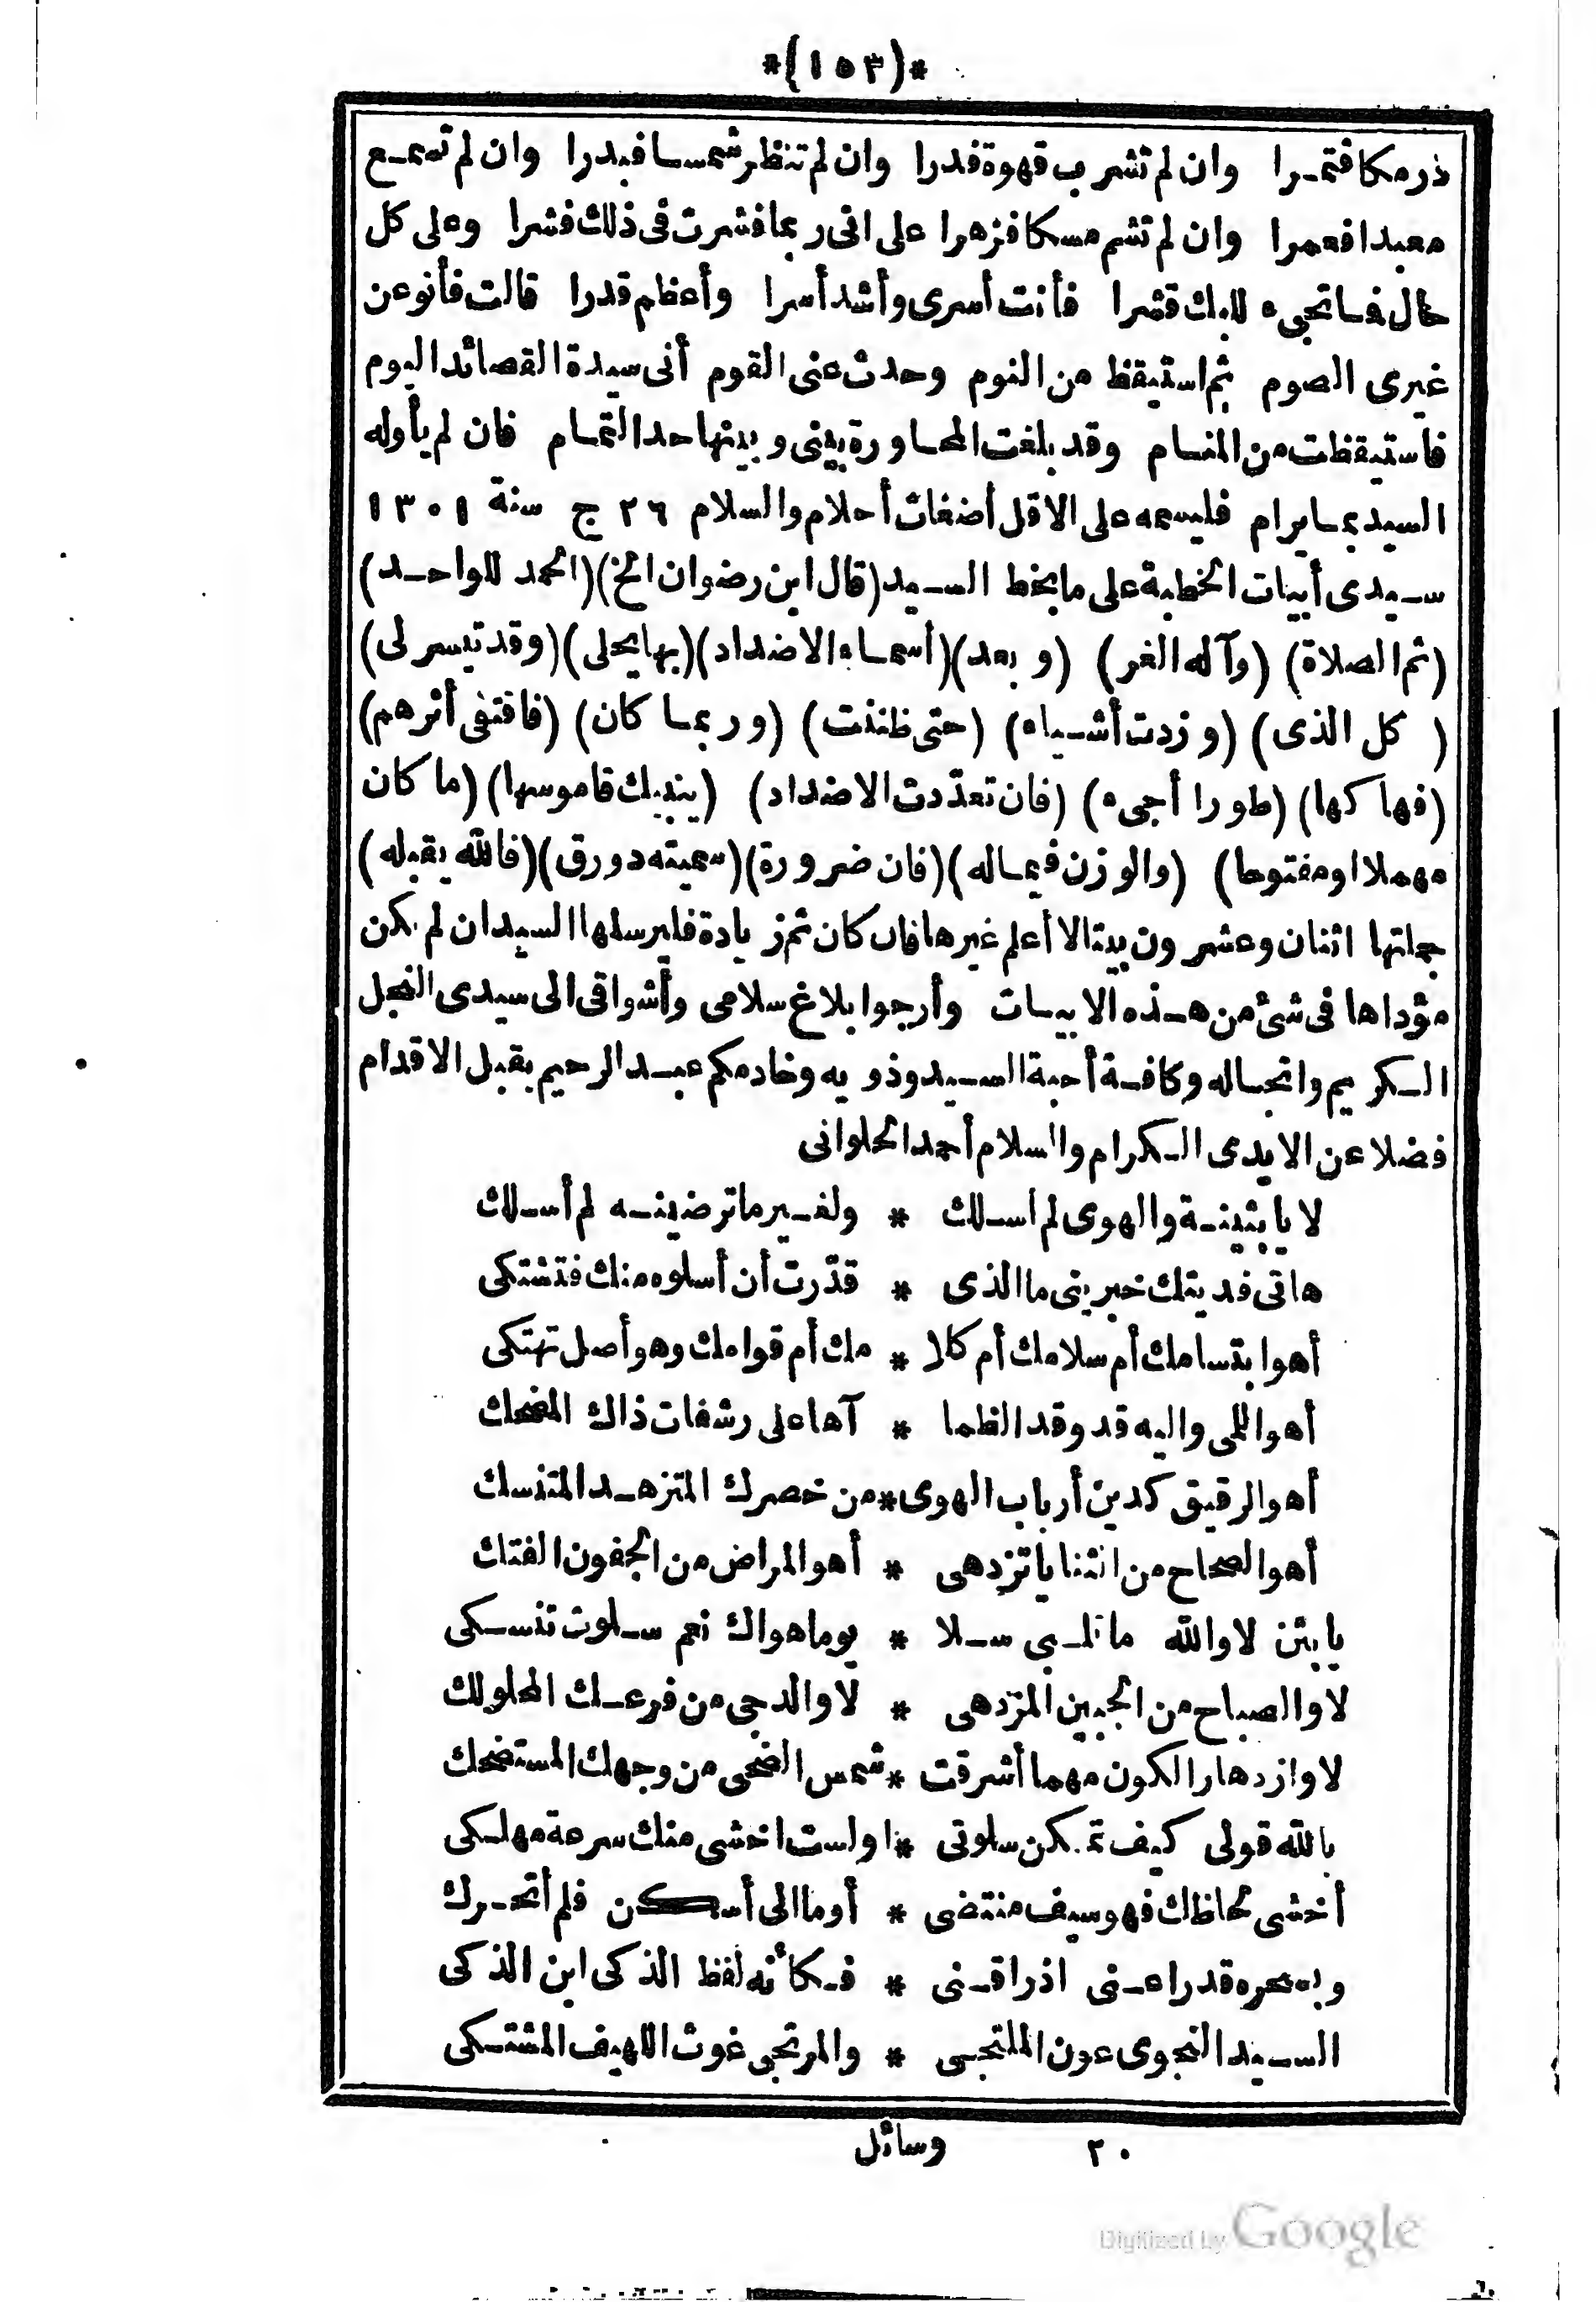 *(١٥٣)*
ذرمكافتمرا وان لم تشرب قهوة فدرا وان لم تنظر شمسا فبدرا وان لم تسمع
معبدا فعمرا وان لم تشم مسكا فزهرا على انى ربما فشرت فى ذلك فشرا وعلى كل
حال فما تجىء للبك قشرا فأنت أسرى وأشد أسرا وأعظم قدرا قالت فأنو عن
غيرى الصوم ثم استيقظ من النوم وحدث عنى القوم أنى سيدة القصائد اليوم
فاستيقظت من المنام وقد بلغت المحاورة بينى وبينها حد التمام فان لم يأوله
السيد بما يرام فليسمه على الاقل أضغاث أحلام والسلام ٢٦ ج سنة ١٣٠١
سيدى أبيات الخطبة على ما بخط السيد (قال ابن رضوان الخ) (الحمد للواحد)
(ثم الصلاة) (وآله الغر) (وبعد) (أسماء الاضداد) (بها يحلى) (وقد تيسر لى)
(كل الذى) (وزدت أشياء) (حتى ظننت) (وربما كان) (فاقتفى أثرهم)
(فها كها) (طورا أجىء) (فان تعدّدت الاضداد) (ينبيك قاموسها) (ما كان
مهملا او مفتوحا) (والوزن فيماله) (فان ضرورة) (سميته دورق) (فالله يقبله)
جملتها اثنان وعشرون بيتا لا أعلم غيرها فان كان ثم زيادة فليرسلها السيد ان لم يكن
مؤداها فى شئ من هذه الابيات وأرجوا بلاغ سلامى وأشواقى الى سيدى النجل
الكريم وانجاله وكافة أحبة السيد وذويه وخادمكم عبد الرحيم يقبل الاقدام
فضلا عن الايدى الكرام والسلام أحمد الحلوانى
لا يا بثينة والهوى لم اسلك * ولغير ما ترضينه لم أسلك
هاتى فديتك خبرينى ما الذى * قدّرت أن أسلوه منك فتشتكى
أهوا بتسامك أم سلامك أم كلا * مك أم قوامك وهو أصل تهتكى
أهوا للمى واليه قد وقد الظما * آها على رشفات ذاك المضحك
أهو الرقيق كدين أرباب الهوى * من خصرك المتزهد المتنسك
أهو الصحاح من الثنايا تزدهى * أهو المراض من الجفون الفتك
يا بثن لا والله ما قلبى سلا * يوما هواك نعم سلوت تنسكى
لا والصباح من الجبين المزدهى * لا والدجى من فرعك المحلولك
لا وازدهار الكون مهما أشرقت * شمس الضحى من وجهك المستضحك
بالله قولى كيف تمكن سلوتى * اولست اخشى منك سرعة مهلكى
أخشى لحاظك فهو سيف منتضى * أو ما الى أسكن فلم أتحرك
وبسحره قدراعنى اذ راقنى * فكأنه لفظ الذكى ابن الذكى
السيد النجوى عون الملتجى * والمرتجى غوث اللهيف المشتكى
٢٠ وسائل
Digitized by Google